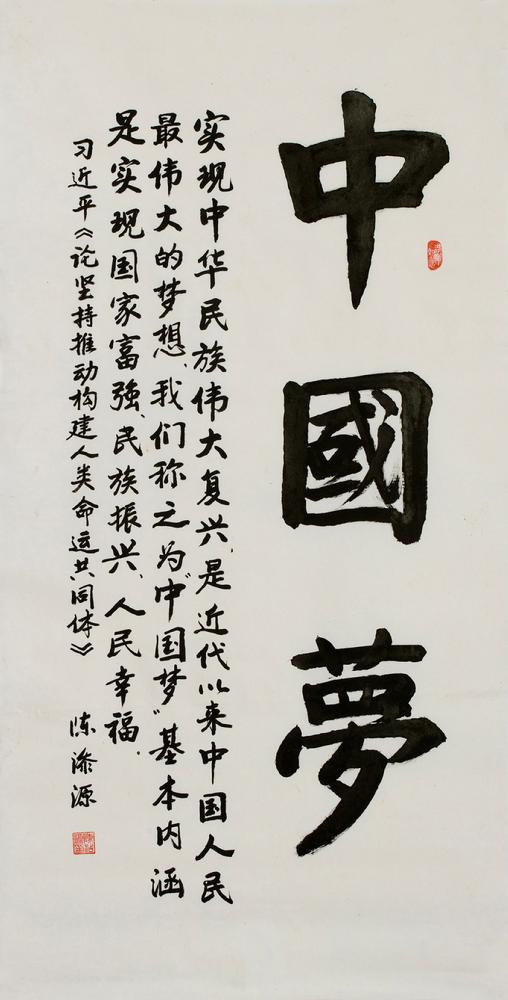 中國夢
实现中华民族伟大复兴,是近代以来中国人民
最伟大的梦想,我们称之为“中国梦”基本内涵
是实现国家富强、民族振兴、人民幸福.
习近平《论坚持推动构建人类命运共同体》
陈添源